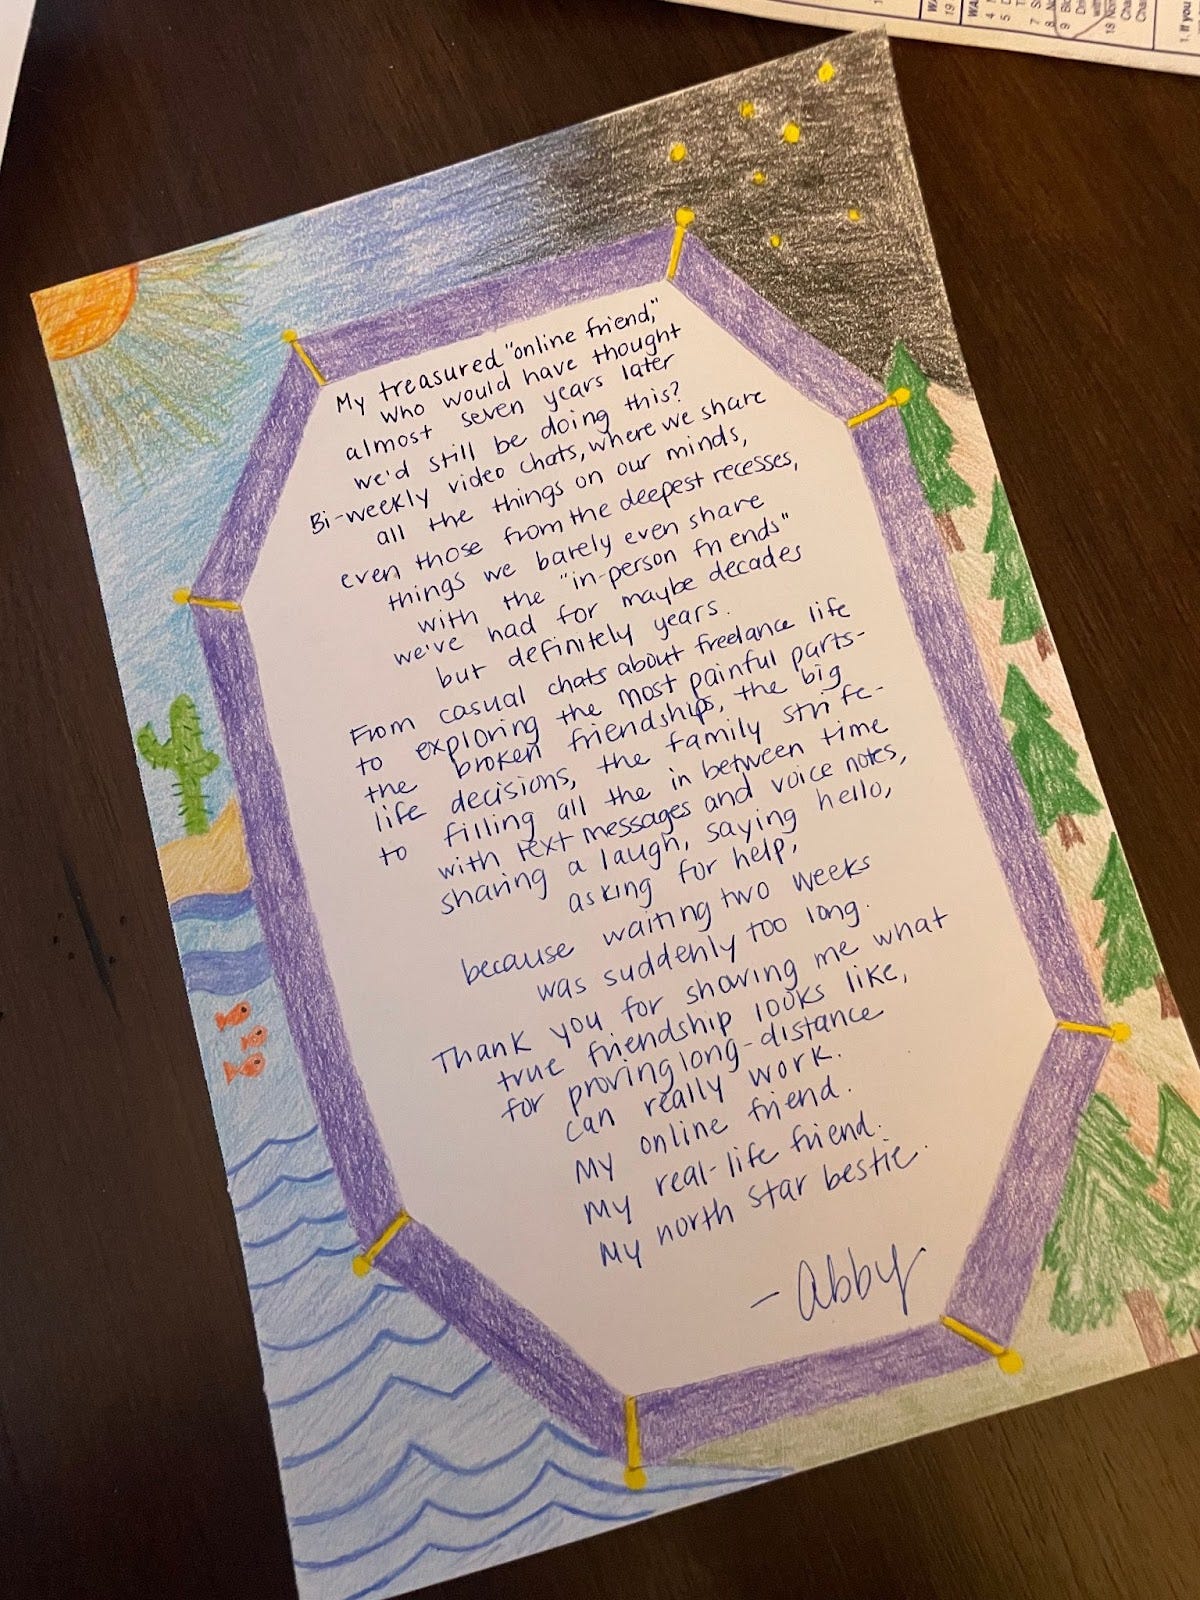 My treasured "online friend,"
who would have thought
almost seven years later
we'd still be doing this?
Bi-weekly video chats, where we share
all the things on our minds,
even those from the deepest recesses,
things we barely even share
with the "in-person friends"
we've had for maybe decades
but definitely years.
From casual chats about freelance life
to exploring the most painful parts-
the broken friendships, the big
life decisions, the family strife-
to filling all the in between time
with text messages and voice notes,
sharing a laugh, saying hello,
asking for help,
because waiting two weeks
was suddenly too long.
Thank you for showing me what
true friendship looks like,
for proving long-distance
can really work.
My online friend.
My real-life friend.
My north star bestie.
- Abby
WA
19
WA
4
5
7
8
9
18
1. If you